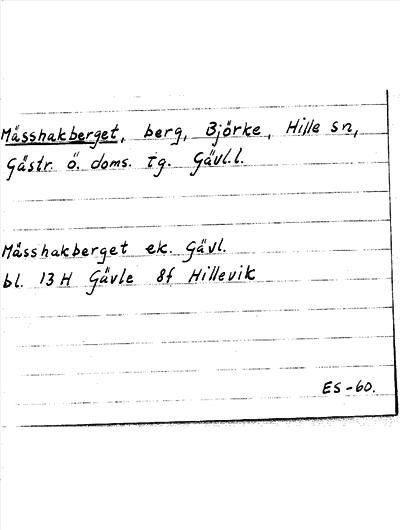 Mässhakberget, berg, Björke, Hille sn,
Gästr. ö. doms. tg. Gävl.l.
Mässhakberget ek. Gävl.
bl. 13 H Gävle 8f Hillevik
ES-60.